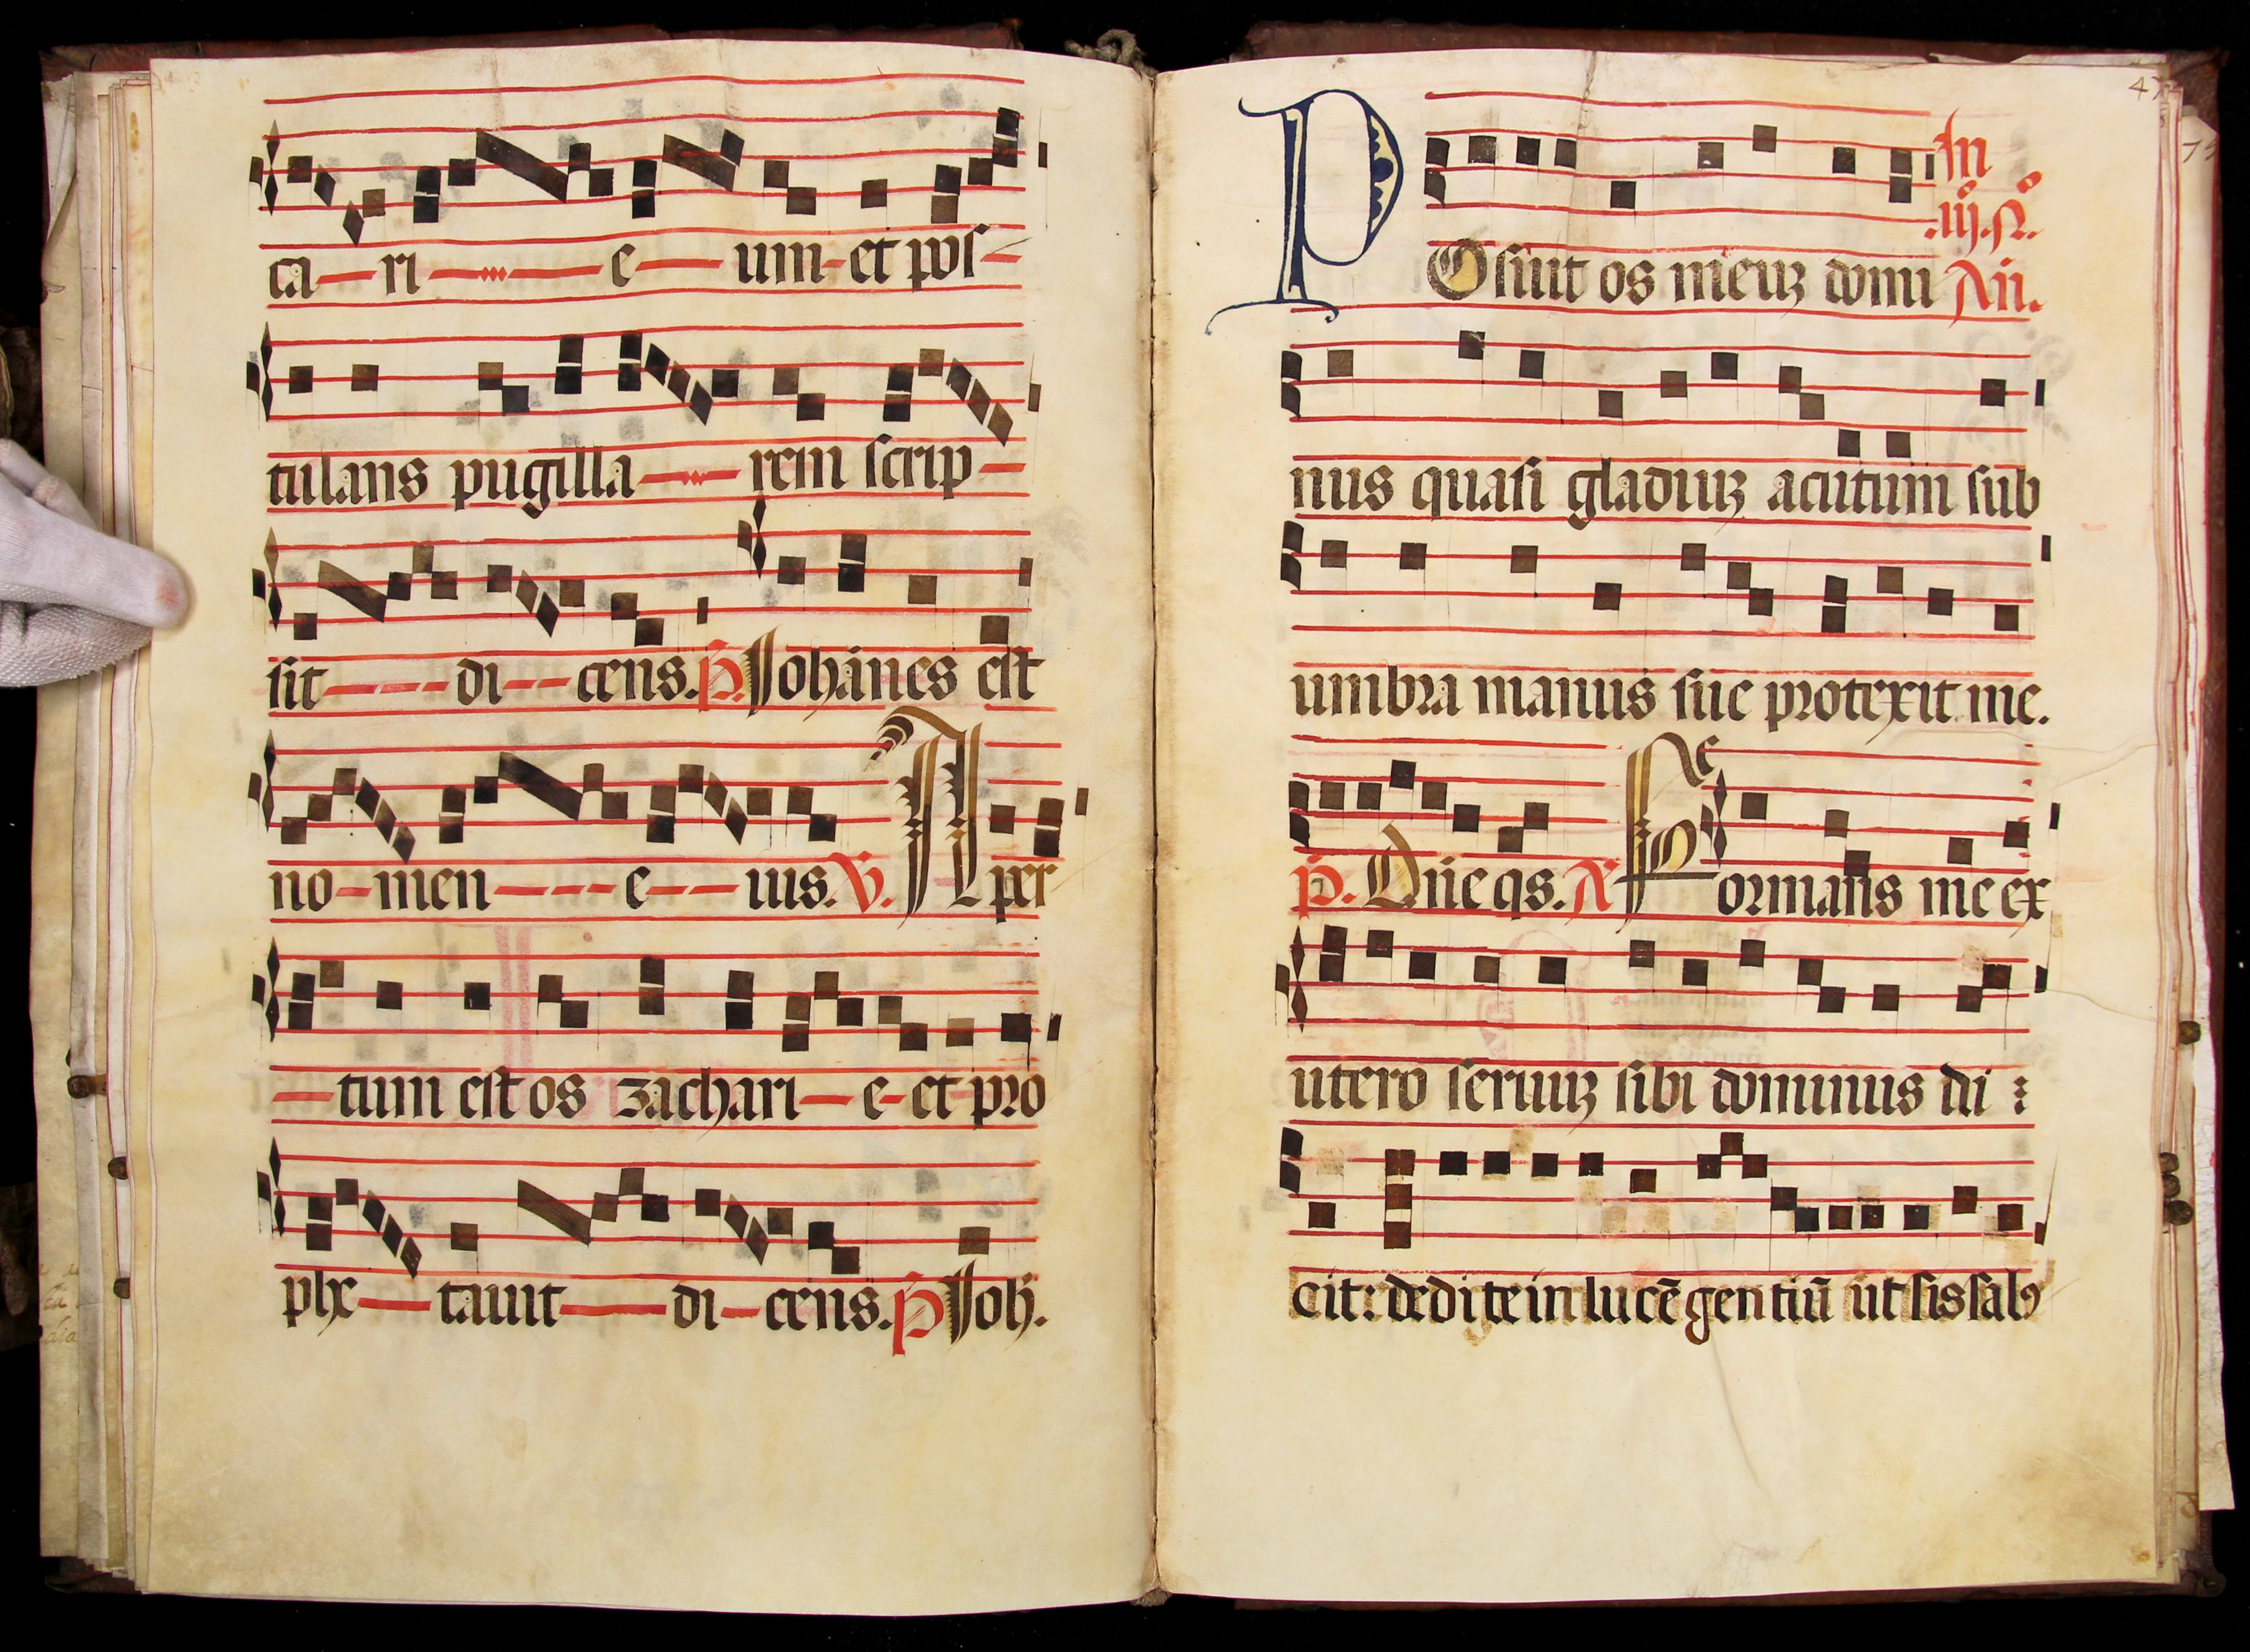 ca-ri-e-um-et pos-
tulans pugilla-rem scrip-
sit-di-cens. P. Johānes est
no-men-e-ius. V. Aper
-tum est os zachari-e-et pro
phe-tauit-di-cens. P Joh.
47
In
.iij. N.
POsuit os meuꝫ domi An.
nus quasi gladiuꝫ acutum sub
umbra manus sue protexit me.
p. Dñe qs. R Formans me ex
utero seruuꝫ sibi dominus di
cit: dedi te in lucē gentiū ut sis salꝰ